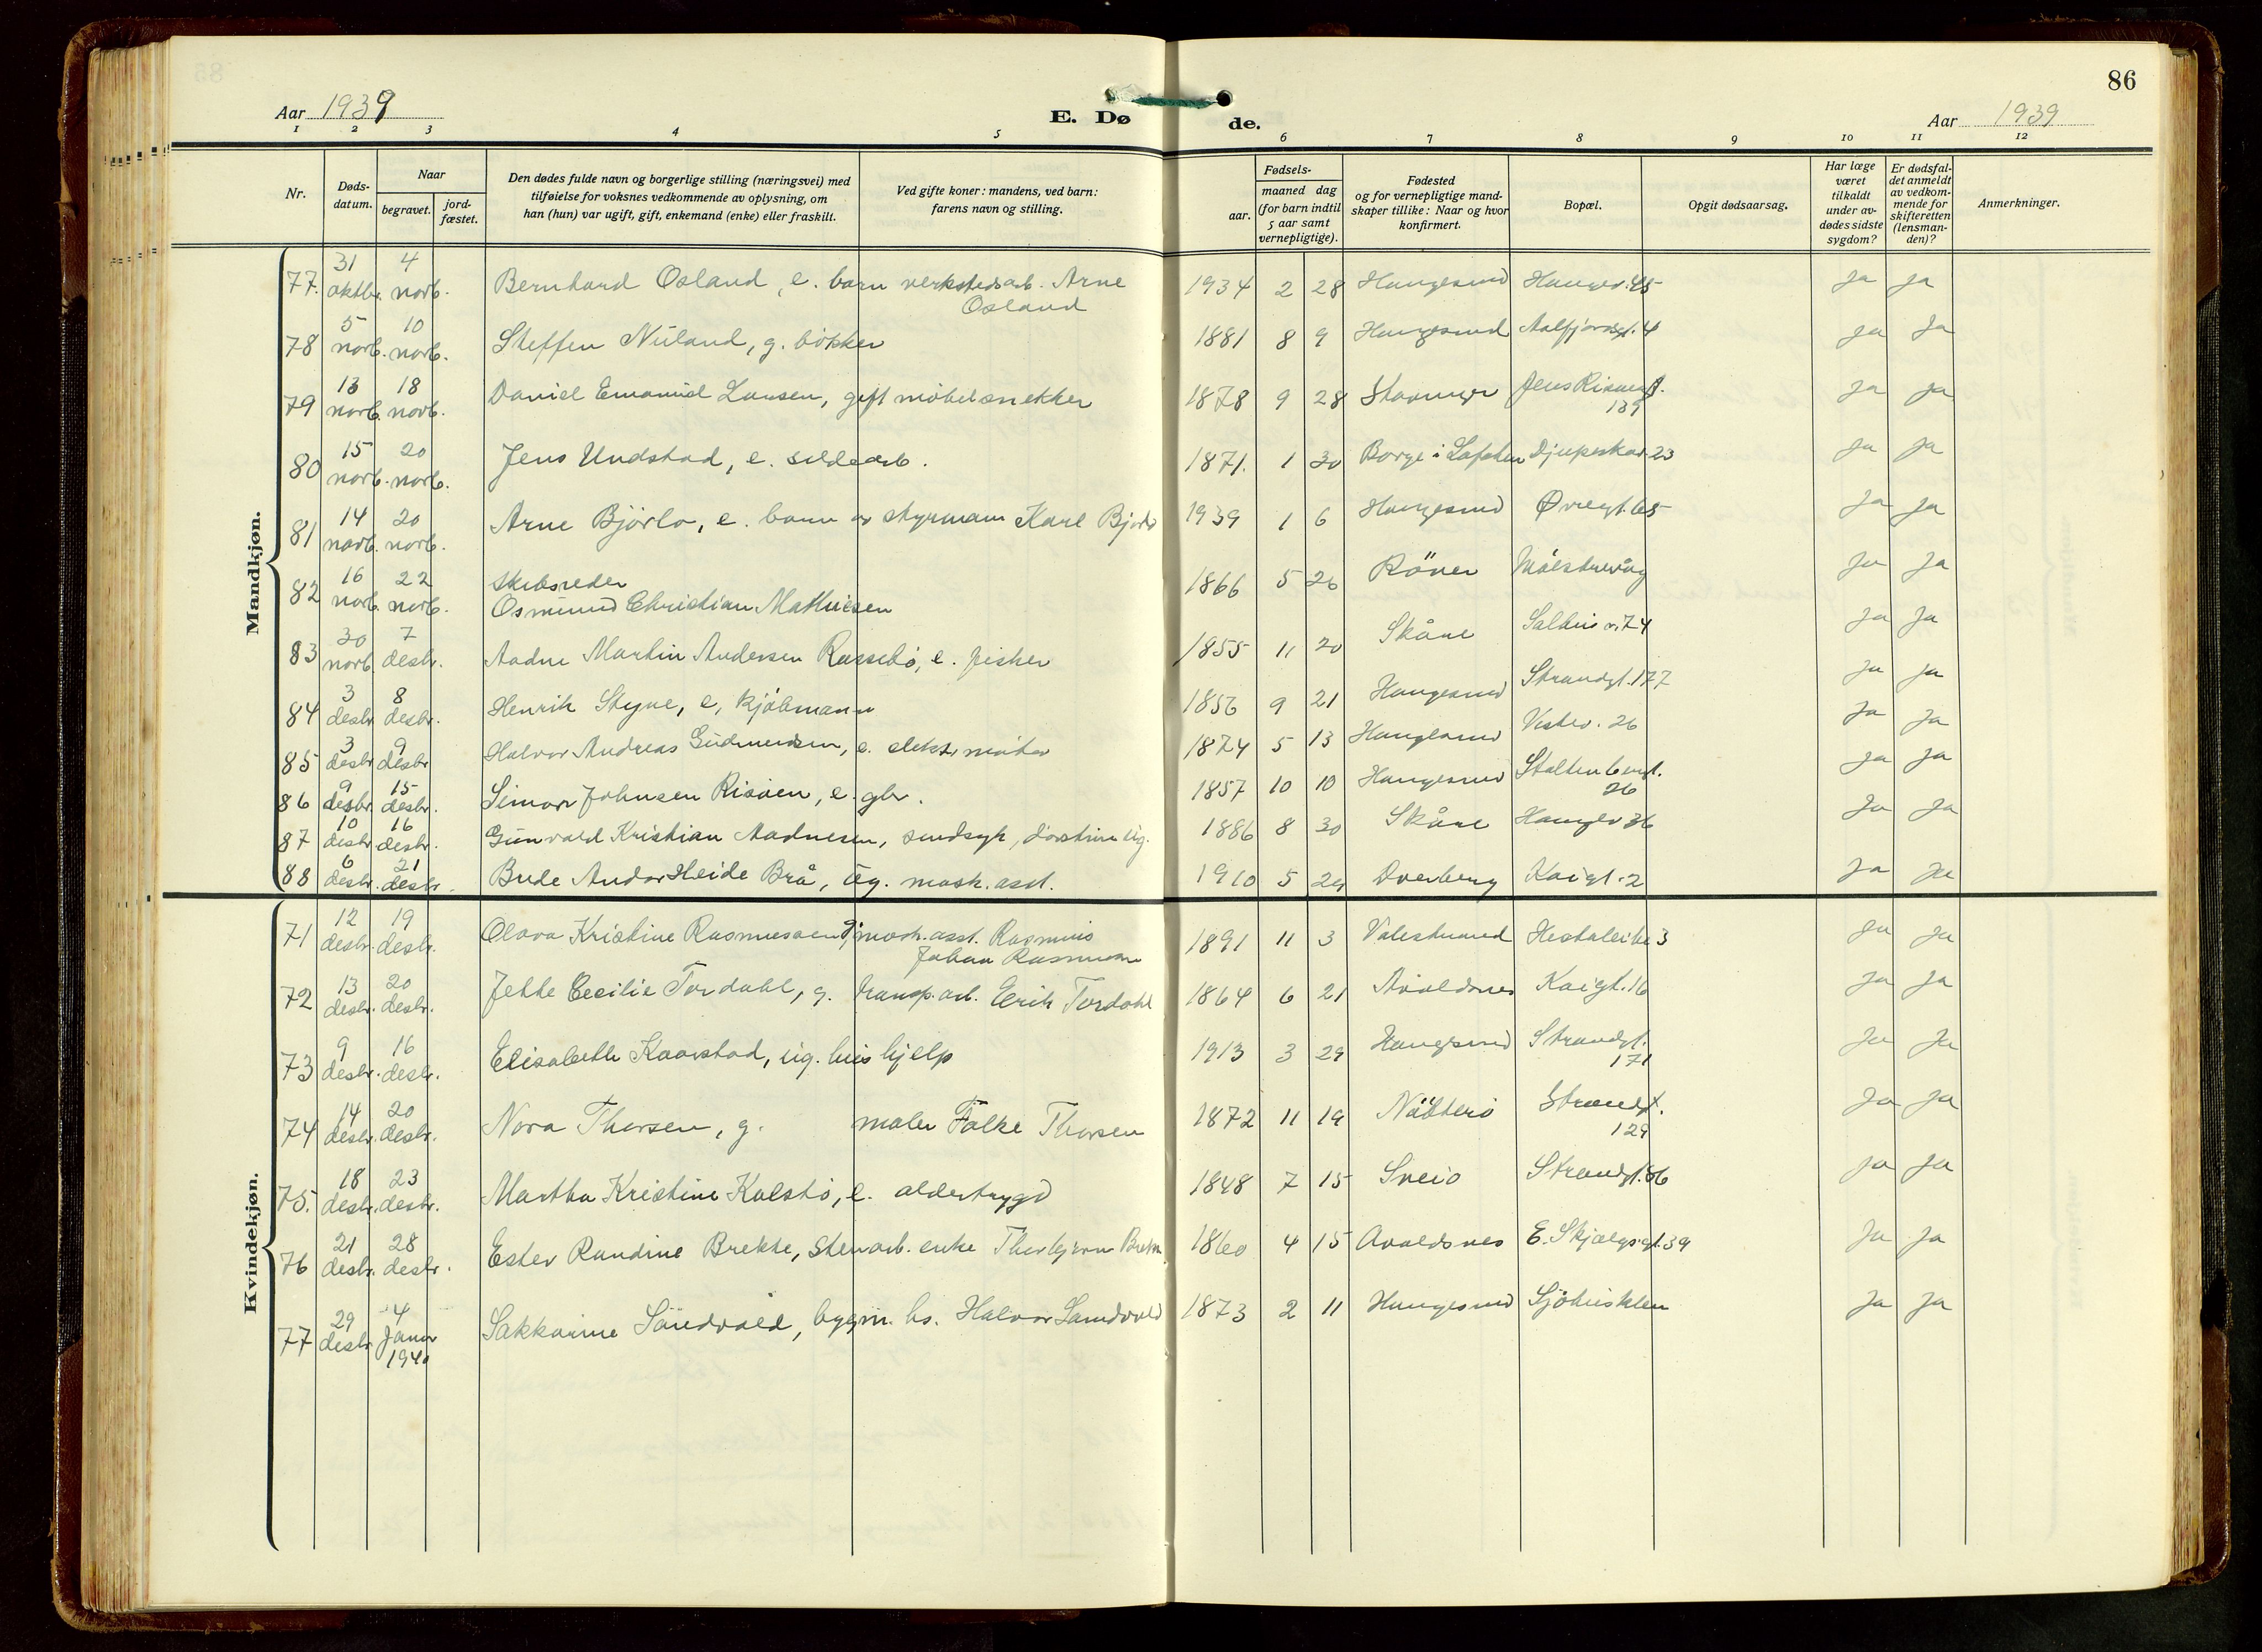 86
Aar 1939
E. Dø
de.
Aar 1939
1 2 3 4 5
6 7 8 9 10 11 12
Nr.
Døds-
datum.
Naar
begravet.
jord-
fæstet.
Den dødes fulde navn og borgerlige stilling (næringsvei) med
tilføielse for voksnes vedkommende av oplysning, om
han (hun) var ugift, gift, enkemand (enke) eller fraskilt.
Ved gifte koner: mandens, ved barn:
farens navn og stilling.
Fødsels-
aar.
maaned dag
(for barn indtil
5 aar samt
vernepligtige).
Fødested
og for vernepligtige mand-
skaper tillike: Naar og hvor
konfirmert.
Bopæl.
Opgit dødsaarsag.
Har læge
været
tilkaldt
under av-
dødes sidste
sygdom?
Er dødsfal-
det anmeldt
av vedkom-
mende for
skifteretten
(lensman-
den)?
Anmerkninger.
Mandkjøn.
77. 31 oktbr. 4 novb. Bernhard Osland, e. barn verkstedsarb. Arne Osland 1934 2 28 Haugesund Haugev. 45 Ja Ja
78 5 novb. 10 novb. Steffen Niland, g. bøkker 1881 8 9 Haugesund Aalfjordgt. 4 Ja Ja
79 13 novb. 18 novb. Daniel Emanuel Larsen, gift møbelsnekker 1878 9 28 Stavanger Jens Risøensgt. 139 Ja Ja
80 15 novb. 20 novb. Jens Undstad, e. sildearb. 1871. 1 30 Borge i Lofoten Djupeskar. 23 Ja Ja
81 14 novb. 20 novb. Arne Bjørlo, e. barn av styrmann Karl Bjørlo 1939 1 6 Haugesund Øvregt. 65 Ja Ja
82 16 novb. 22 novb. Skibsreder Osmund Christian Mathiesen 1866 5 26 Röver Ja Ja
83 30 novb. 7 desbr. Aadne Martin Andersen Rossebø, e. fisker 1855 11 20 Skåne Salhusv. 74 Ja Ja
84 3 desbr. 8 desbr. Henrik Styve, e, kjøbmann 1856 9 21 Haugesund Strandgt. 177 Ja Ja
85 3 desbr. 9 desbr. Halvor Andreas Gudmundsen, e. elektr. montør 1874 5 13 Haugesund Vestev. 26 Ja Ja
86 9 desbr. 15 desbr. Simon Johnsen Risøen, e. gbr. 1857 10 10 Haugesund Stoltenbergt. 26 Ja Ja
87 10 desbr. 16 desbr. Gunvald Kristian Aadnesen, sindsyk, ug. 1886 8 30 Skåre Haugev 36 Ja Ja
88 6 desbr. 21 desbr. Bude Andor Heide Brå, ug. mask. asst. 1910 5 29 Dverberg Kaigt. 2 Ja Ja
Kvindekjøn.
71 12 desbr. 19 desbr. Olava Kristine Rasmussen g. mask. asst. Rasmus Johan Rasmussen 1891 11 3 Valestrand Hestaleite 3 Ja Ja
72 13 desbr. 20 desbr. Jette Cecilie Tordahl, g. transp. arb. Erik Tordahl 1864 6 21 Avaldsnes Kaigt. 16 Ja Ja
73 9 desbr. 16 desbr. Elisabeth Kaarstad, ug. hushjelp 1913 3 29 Haugesund Strandgt. 171 Ja Ja
74 14 desbr. 20 desbr. Nora Thorsen, g. maler Falke Thorsen 1872 11 19 Nötterö Strandgt. 129 Ja Ja
75. 18 desbr. 23 desbr. Martha Kristine Kalstø, e. alderstrygd 1848 7 15 Sveio Strandgt. 86 Ja Ja
76 21 desbr. 28 desbr. Ester Randine Brekke, stenarb. enke Thorbjørn Brekke 1860 4 15 Avaldsnes E. Skjalgsgt. 39 Ja Ja
77 29 desbr. 4 Januar 1940 Sakkarine Sandvold, bygm. hs. Halvor Sandvold 1873 2 11 Haugesund Sjöhusklen Ja Ja